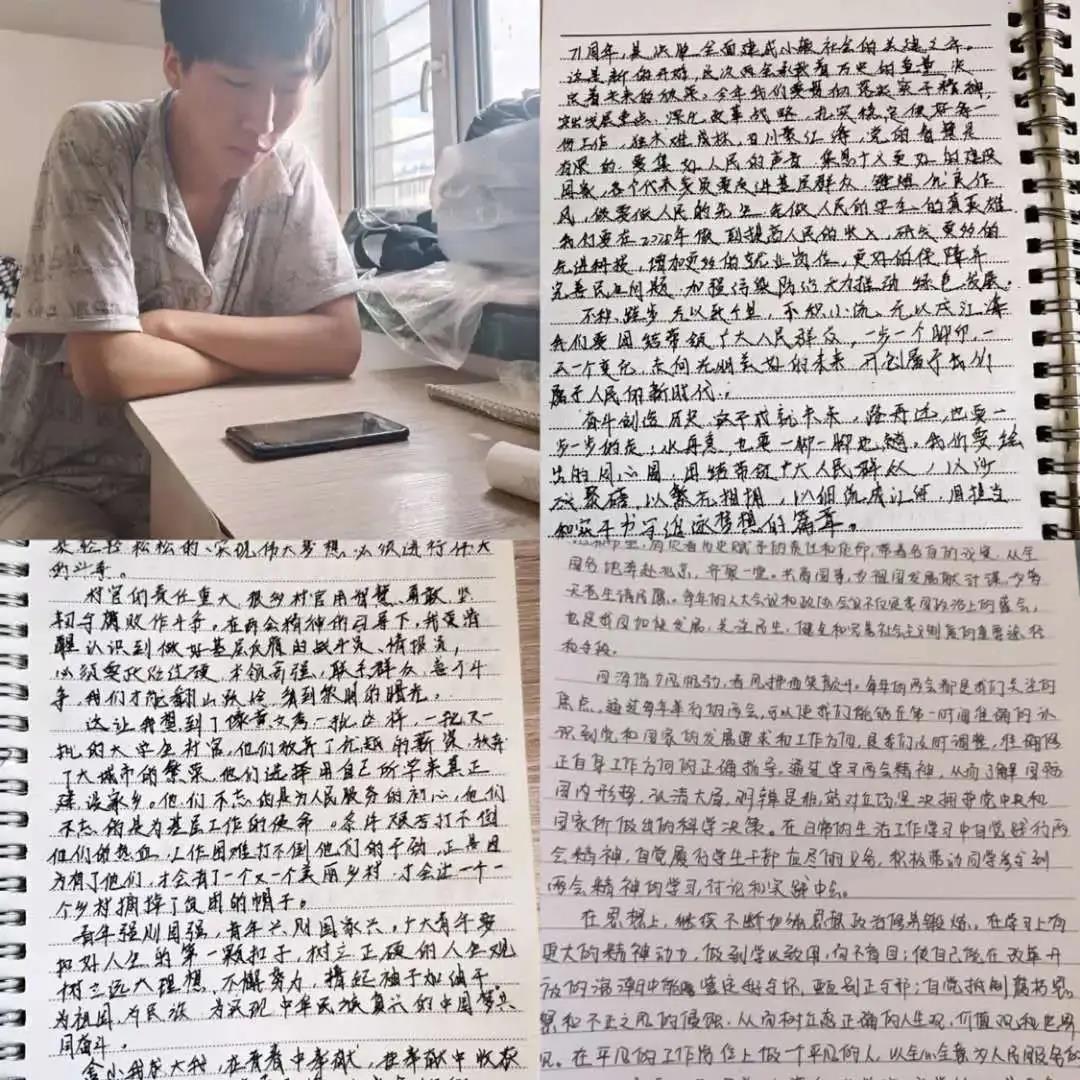 71周年，是决胜全面建成小康社会的关键之年。
这是新的开始，这次两会承载着历史的重量，决
定着未来的政策。今年我们要贯彻落实实干精神，
突出发展重点，深化改革战略，扎实稳定便好每一
份工作，独木难成林，百川聚江海，党的智慧是
有限的，要集好人民的声音，集思十人更好的建设
国家，各个代表委员要走进基层群众，
风，做要做人民的先生，先做人民的学生的真英雄
我们要在2020年做到提高人民的收入，研发更好的
先进科技，增加更多的就业岗位，更好的保障并
完善民生问题，加强污染防治大力推动绿色发展。
不积跬步无以致千里，不积小流，无以成江海
我们要团结带领广大人民群众，一步一个脚印，一
天一个变化，走向光明美好的未来，开创属于我们
属于人民的新时代。
奋斗创造历史，实干成就未来，路再远，也要一
步一步的走；水再急，也要一脚一脚地趟。我们要绘
出的同心圆，团结带领广大人民群众，以沙
以繁元相拥，以细流成江河，用担当
和实干书写追逐梦想的篇章。
轻轻松松的，实现伟大梦想，必须进行伟大
的斗争。
村官的责任重大，很多村官用智慧、勇敢、坚
韧与腐败作斗争。在两会精神的引导下，我要清
醒认识到做好基层反腐的战斗员、情报员，
必须要政治过硬，本领高强，联系群众，善于斗
争，我们才能翻山跃岭，看到黎明的曙光。
这让我想到了像黄文秀一批这样，一批又一
批的大学生村官，他们放弃了优越的薪资，放弃
了大城市的繁荣，他们选择用自己所学来真正
建设家乡。他们不忘的是为人民服务的初心，他们
不忘的是为基层工作的使命。条件艰苦打不倒
他们的热血，工作困难打不倒他们的干劲，正是因
为有了他们，才会有了一个又一个美丽乡村，才会让一个
个乡村摘掉了贫困的帽子。
青年强则国强，青年兴则国家兴。广大青年要
扣好人生的第一颗扣子，树立正确的人生观
树立远大理想，不懈努力，撸起袖子加油干，
为祖国，为民族，为实现中华民族复兴的中国梦共
同奋斗。
舍小我求大我，在青春中奉献，在奉献中收获
肩负着历史赋予的责任和使命，带着各自的议案，从全
国各地奔赴北京，齐聚一堂。共商国事，为祖国发展献计谋，为
天苍生请所愿。每年的人大会议和政协会议不仅是我国政治上的盛会，
也是我国加快发展，关注民生，健全和完善社会主义制度的重要途径
和手段。
四海俏力风脱动，春风拂面笑颜开。每年的两会都是我们关注的
焦点，通过每年举行的两会，可以使我们能够在第一时间准确的认
识到党和国家的发展要求和工作方向，是我们及时调整，准确修
正自身工作方向的正确指导。通过学习两会精神，从而了解国际
国内形势，认清大局，明辨是非，站对立场，坚决拥护党中央和
国家所做出的科学决策。在日常的生活工作学习中自觉践行两
会精神，自觉履行学生干部应尽的义务，积极带动同学参与到
两会精神的学习，讨论和实践中去。
在思想上，继续不断加强思想政治修养锻炼。在学习上有
更大的精神动力，做到学以致用，但不盲目；使自己能在改革开
放的浪潮中能够鉴定好与坏，甄别正与邪；自觉抵制腐朽思
想和不正之风的侵蚀，从而树立正确的人生观，价值观和世界
观。在平凡的工作岗位上做一个平凡的人，以全心全意为人民服务的